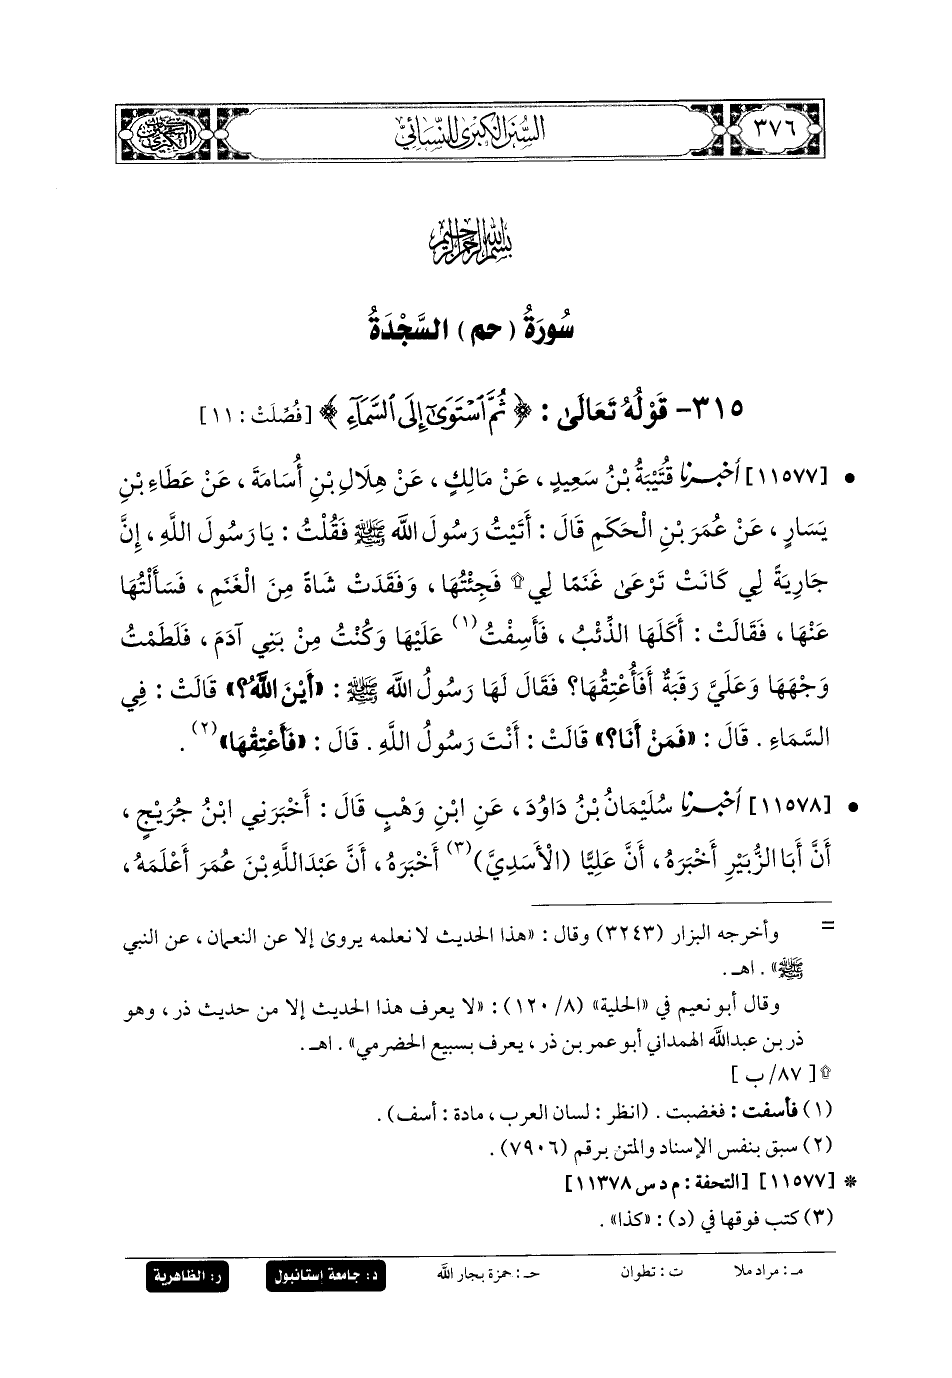 ٣٧٦
السنن الكبرى للنسائي
بسم الله الرحمن الرحيم
سُورَةُ (حم) السَّجْدَةُ
٣١٥- قَوْلُهُ تَعَالَىٰ : ﴿ ثُمَّ ٱسْتَوَىٰٓ إِلَى ٱلسَّمَآءِ ﴾ [فُصِّلَتْ : ١١]
• [١١٥٧٧] أخبرنا قُتَيْبَةُ بْنُ سَعِيدٍ ، عَنْ مَالِكٍ ، عَنْ هِلَالِ بْنِ أُسَامَةَ ، عَنْ عَطَاءِ بْنِ
يَسَارٍ ، عَنْ عُمَرَ بْنِ الْحَكَمِ قَالَ : أَتَيْتُ رَسُولَ اللَّه ﷺ فَقُلْتُ : يَا رَسُولَ اللَّهِ ، إِنَّ
جَارِيَةً لِي كَانَتْ تَرْعَىٰ غَنَمًا لِي۩ فَجِئْتُهَا ، وَفَقَدَتْ شَاةً مِنَ الْغَنَمِ ، فَسَأَلْتُهَا
عَنْهَا ، فَقَالَتْ : أَكَلَهَا الذِّئْبُ ، فَأَسِفْتُ(١) عَلَيْهَا وَكُنْتُ مِنْ بَنِي آدَمَ ، فَلَطَمْتُ
وَجْهَهَا وَعَلَيَّ رَقَبَةٌ أَفَأُعْتِقُهَا؟ فَقَالَ لَهَا رَسُولُ اللَّه ﷺ : «أَيْنَ اللَّهُ؟» قَالَتْ : فِي
السَّمَاءِ . قَالَ : «فَمَنْ أَنَا؟» قَالَتْ : أَنْتَ رَسُولُ اللَّهِ . قَالَ : «فَأَعْتِقْهَا»(٢) .
• [١١٥٧٨] أخبرنا سُلَيْمَانُ بْنُ دَاوُدَ ، عَنِ ابْنِ وَهْبٍ قَالَ : أَخْبَرَنِي ابْنُ جُرَيْجٍ ،
أَنَّ أَبَا الزُّبَيْرِ أَخْبَرَهُ ، أَنَّ عَلِيًّا (الْأَسَدِيَّ)(٣) أَخْبَرَهُ ، أَنَّ عَبْدَاللَّهِ بْنَ عُمَرَ أَعْلَمَهُ ،
= وأخرجه البزار (٣٢٤٣) وقال : «هذا الحديث لا نعلمه يروىٰ إلا عن النعمان ، عن النبي
ﷺ» . اهـ .
وقال أبو نعيم في «الحلية» (٨/ ١٢٠) : «لا يعرف هذا الحديث إلا من حديث ذر ، وهو
ذر بن عبدالله الهمداني أبو عمر بن ذر ، يعرف بسبيع الحضرمي» . اهـ .
۩ [ ٨٧/ ب ]
(١) فأسفت : فغضبت . (انظر : لسان العرب ، مادة : أسف) .
(٢) سبق بنفس الإسناد والمتن برقم (٧٩٠٦) .
* [١١٥٧٧] [التحفة : م د س ١١٣٧٨]
(٣) كتب فوقها في (د) : «كذا» .
مـ : مراد ملا ت : تطوان حـ : حمزة بجار الله د: جامعة إستانبول ر: الظاهرية